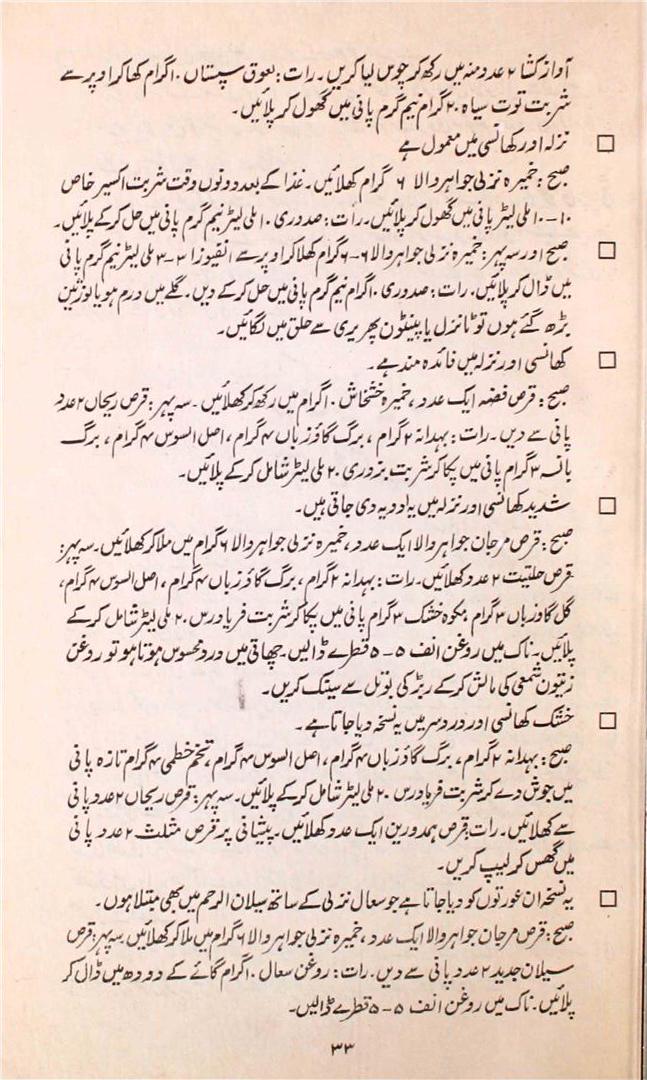 آواز کشا ۲ عدد منہ میں رکھ کر چوس لیا کریں۔ رات: لعوق سپستاں ۱۰ گرام کھا کر اوپر سے
شربت توت سیاہ ۲۰ گرام نیم گرم پانی میں گھول کر پلائیں۔
□ نزلہ اور کھانسی میں معمول ہے
صبح: خمیرہ نزلی جواہر والا ۶ گرام کھلائیں۔ غذا کے بعد دونوں وقت شربت اکسیر خاص
۱۰-۱۰ ملی لیٹر پانی میں گھول کر پلائیں۔ رات: صدوری ۱۰ ملی لیٹر نیم گرم پانی میں حل کر کے پلائیں۔
□ صبح اور سہ پہر: خمیرہ نزلی جواہر والا ۶-۶ گرام کھلا کر اوپر سے انفیوزا ۳-۳ ملی لیٹر نیم گرم پانی
میں ڈال کر پلائیں۔ رات: صدوری ۱۰ گرام نیم گرم پانی میں حل کر کے دیں۔ گلے میں ورم ہو یا لوزتین
بڑھ گئے ہوں تو ٹانزل یا پینٹون پھریری سے حلق میں لگائیں۔
□ کھانسی اور نزلہ میں فائدہ مند ہے۔
صبح: قرص فضہ ایک عدد، خمیرہ خشخاش ۱۰ گرام میں رکھ کر کھلائیں۔ سہ پہر: قرص ریحاں ۲ عدد
پانی سے دیں۔ رات: بہدانہ ۲ گرام، برگ گاؤزباں ۴ گرام، اصل السوس ۴ گرام، برگ
بانسہ ۳ گرام پانی میں پکا کر شربت بزوری ۲۰ ملی لیٹر شامل کر کے پلائیں۔
□ شدید کھانسی اور نزلہ میں یہ ادویہ دی جاتی ہیں۔
صبح: قرص مرجان جواہر والا ایک عدد، خمیرہ نزلی جواہر والا ۶ گرام میں ملا کر کھلائیں۔ سہ پہر:
قرص حلتیت ۲ عدد کھلائیں۔ رات: بہدانہ ۲ گرام، برگ گاؤزباں ۴ گرام، اصل السوس ۴ گرام،
گل گاوزباں ۳ گرام، مکوہ خشک ۳ گرام پانی میں پکا کر شربت فریادرس ۲۰ ملی لیٹر شامل کر کے
پلائیں۔ ناک میں روغن انف ۵-۵ قطرے ڈالیں۔ چھاتی میں درد محسوس ہوتا ہو تو روغن
زیتون شمعی کی مالش کر کے ربڑ کی بوتل سے سینک کریں۔
□ خشک کھانسی اور درد سر میں یہ نسخہ دیا جاتا ہے۔
صبح: بہدانہ ۲ گرام، برگ گاؤزباں ۴ گرام، اصل السوس ۴ گرام، تخم خطمی ۴ گرام تازہ پانی
میں جوش دے کر شربت فریادرس ۲۰ ملی لیٹر شامل کر کے پلائیں۔ سہ پہر: قرص ریحاں ۲ عدد پانی
سے کھلائیں۔ رات: قرص ہمدورین ایک عدد کھلائیں۔ پیشانی پر قرص مثلث ۲ عدد پانی
میں گھس کر لیپ کریں۔
□ یہ نسخہ ان عورتوں کو دیا جاتا ہے جو سعال نزلی کے ساتھ سیلان الرحم میں بھی مبتلا ہوں۔
صبح: قرص مرجان جواہر والا ایک عدد، خمیرہ نزلی جواہر والا ۶ گرام میں ملا کر کھلائیں۔ سہ پہر: قرص
سیلان جدید ۲ عدد پانی سے دیں۔ رات: روغن سعال ۱۰ گرام گائے کے دودھ میں ڈال کر
پلائیں۔ ناک میں روغن انف ۵-۵ قطرے ڈالیں۔
۳۳